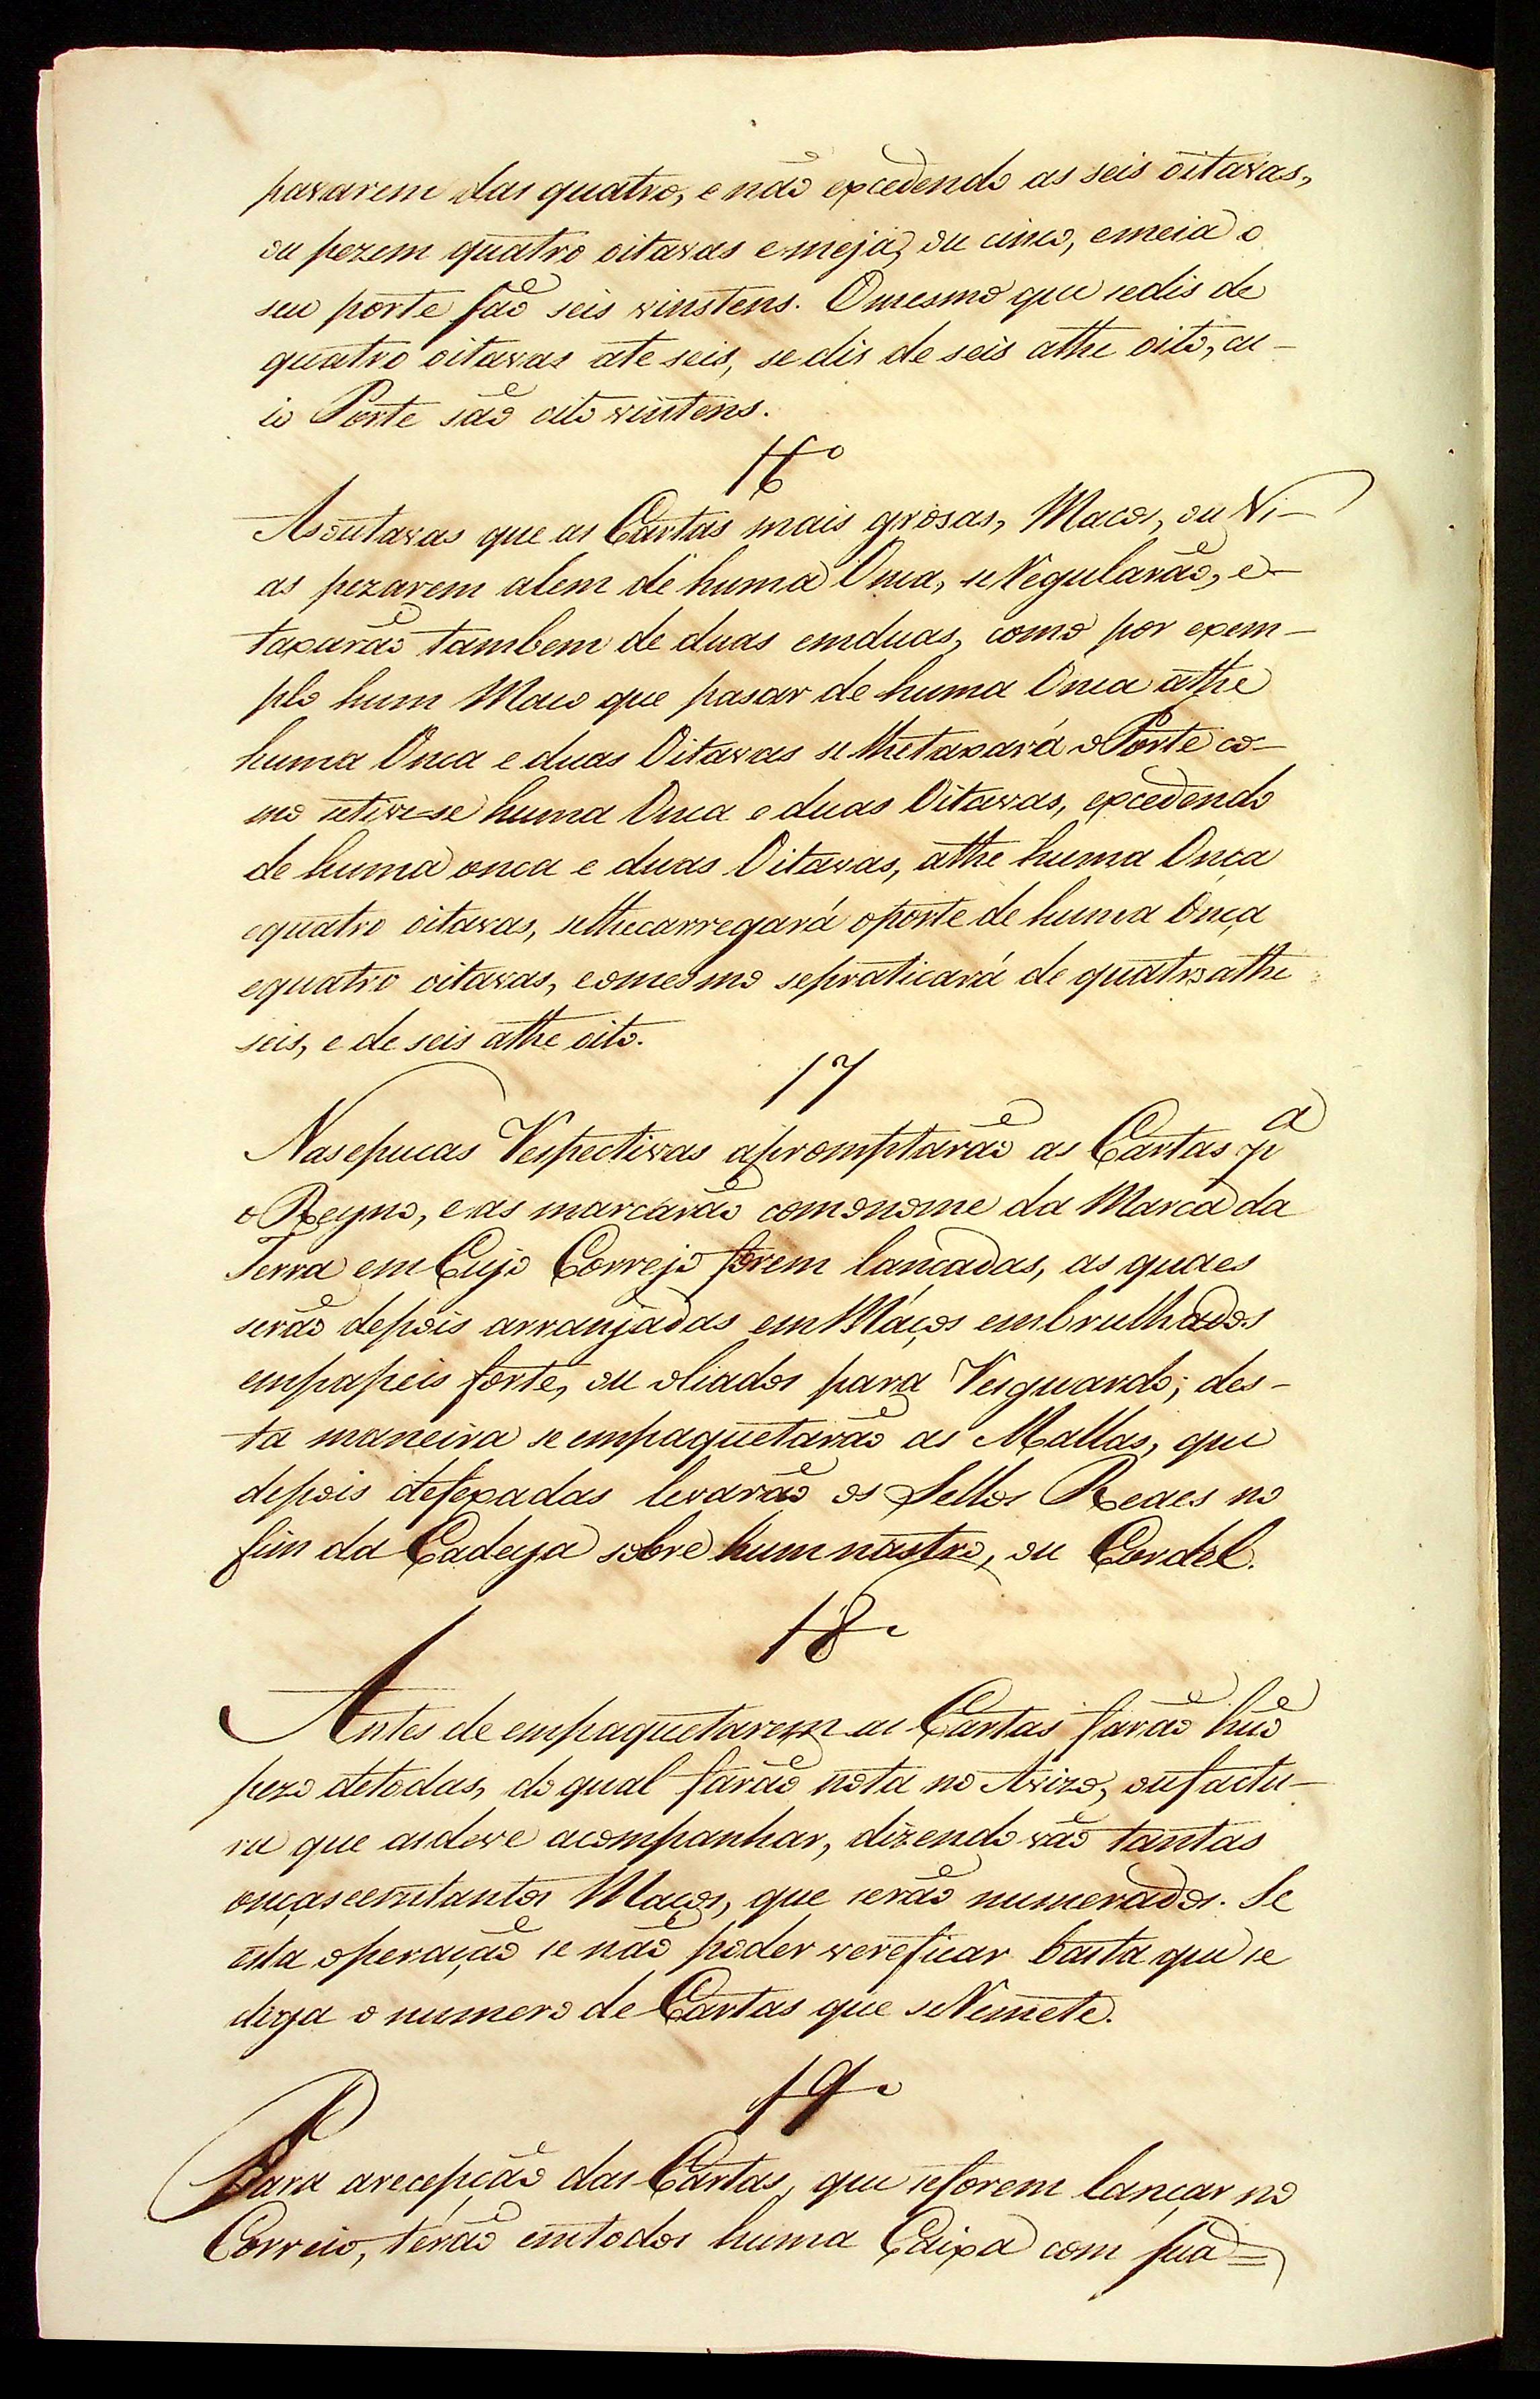 pasarem das quatro, e não excedendo as seis oitavas,
ou pezem quatro oitavas e meja, ou cinco, emeia o
seu porte são seis vinstens. Omesmo que sedis de
quatro oitavas ate seis, se dis de seis athe oito, cu-
io Porte são oito vintens.
16º
Asoutavas que as Cartas mais grosas, Macos, ou Vi-
as pezarem alem de huma Onca, se Regularão, e
taxarão tambem de duas emduas, como por exem-
plo hum Maco que pasar de huma Onca athe
huma Onca e duas Oitavas se lhetaxará o Porte co-
mo setive-se huma Onca e duas Oitavas, excedendo
de huma onca e duas Oitavas, athe huma Onça
equatro oitavas, selhecarregará oporte de huma Onça
equatro oitavas, eomesmo sepraticará de quatro athe
seis, e de seis athe oito.
17
Nasepucas Respectivas apromptarão as Cartas pª
o Reyno, e as marcarão comonome da Marca da
Terra em Cujo Correjo forem lancadas, as quaes
serão depois arranjadas em Máços embrulhados
empapeis forte, ou oliados para Resguardo; des-
ta maneira se empaquetarão as Mallas, que
depois defexadas levarão os Sellos Reaes no
fim da Cadeya sobre hum nastro, ou Cordel.
18.
Antes de empaquetarem as Cartas farão hũo
pezo detodas, do qual farão nota no Avizo, oufactu-
ra que asdeve acompanhar, dizendo vão tantas
onças eemtantos Maços, que serão numerados. Se
esta operação se não poder vereficar basta que se
diga o numero de Cartas que seRemete.
19.
Para arecepção das Cartas, que seforem lançar no
Correio, terão emtodos huma Caixa com sua=